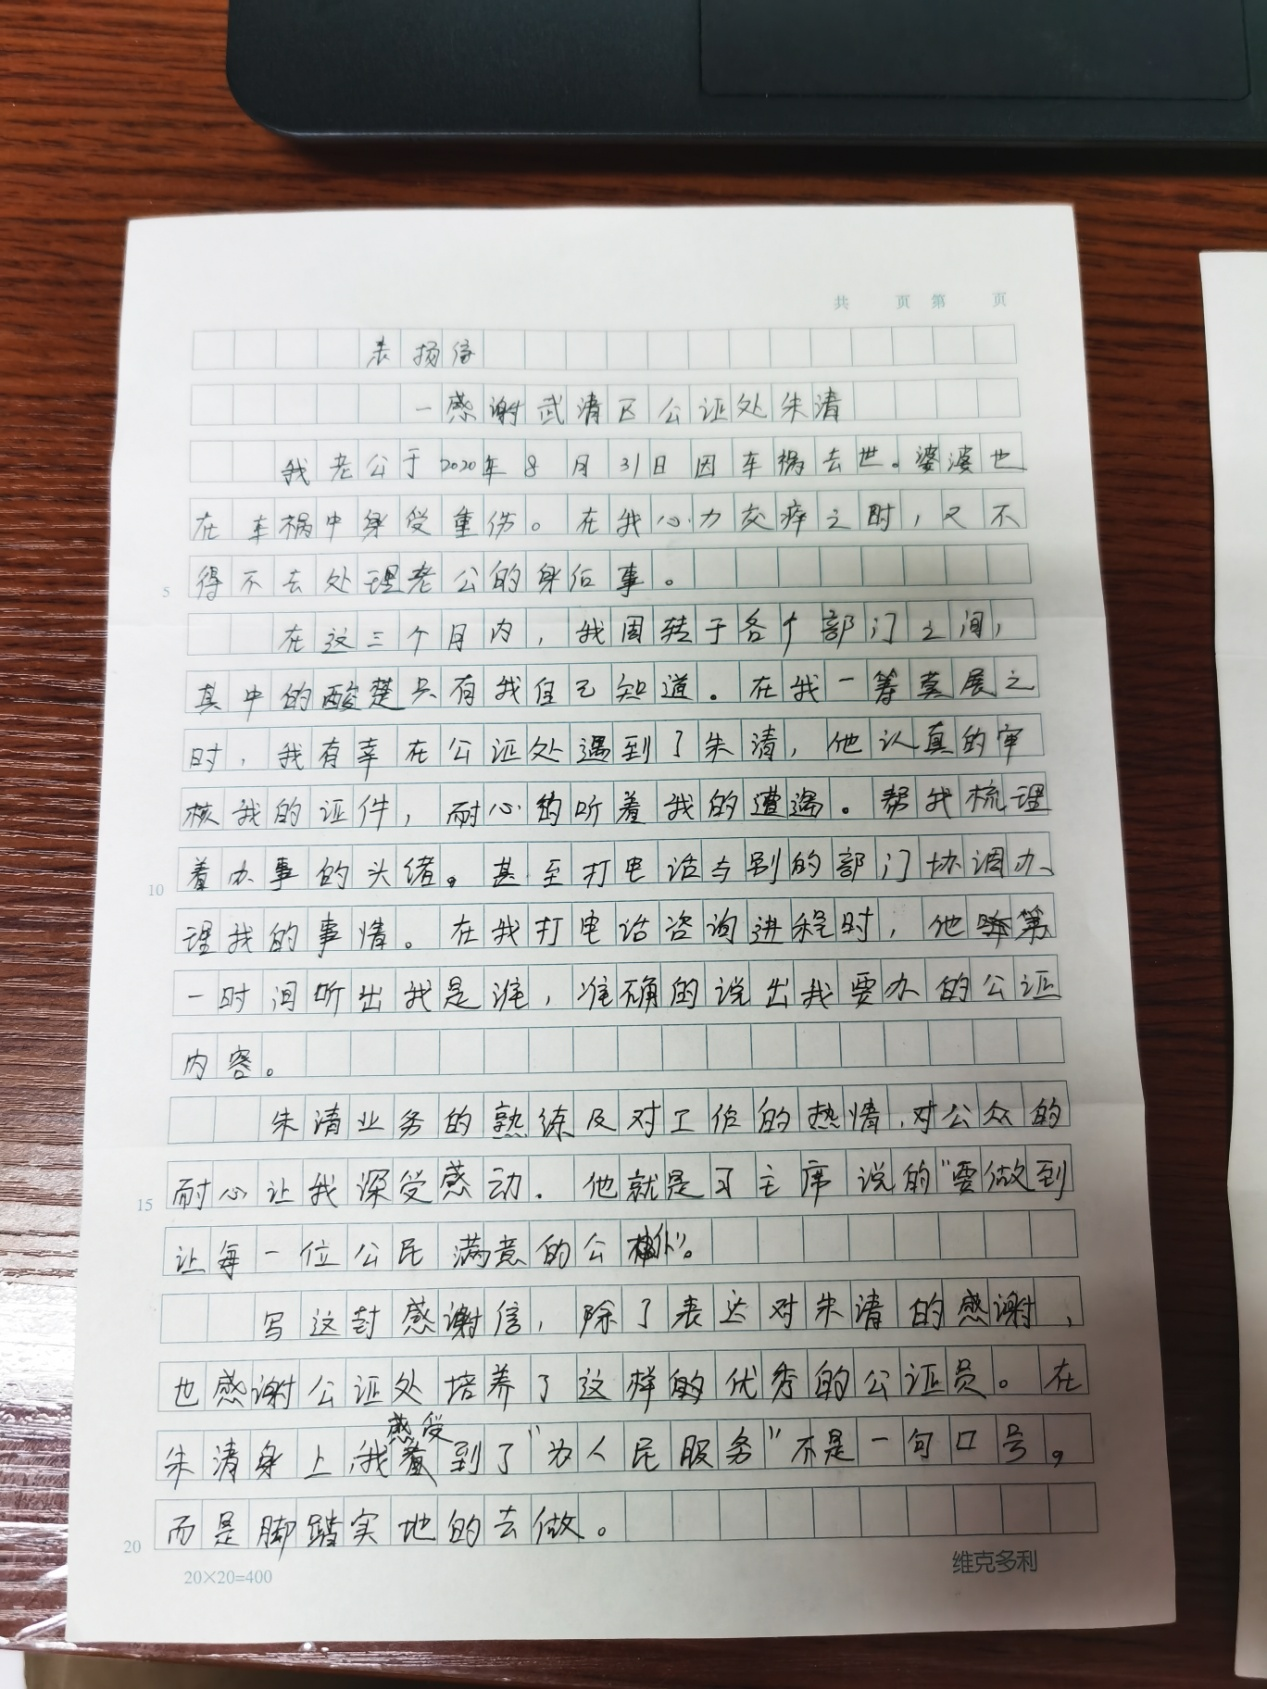 共 页 第 页
表扬信
—感谢武清区公证处朱清
我老公于2020年8月31日因车祸去世。婆婆也
在车祸中身受重伤。在我心力交瘁之时,又不
得不去处理老公的身后事。
5
在这三个月内,我周转于各个部门之间,
其中的酸楚只有我自己知道。在我一筹莫展之
时,我有幸在公证处遇到了朱清,他认真的审
核我的证件,耐心的听着我的遭遇。帮我梳理
着办事的头绪。甚至打电话与别的部门协调办
10
理我的事情。在我打电话咨询进程时,他第
一时间听出我是谁,准确的说出我要办的公证
内容。
朱清业务的熟练及对工作的热情,对公众的
耐心让我深受感动.他就是习主席说的"要做到
15
让每一位公民满意的公仆"。
写这封感谢信,除了表达对朱清的感谢,
也感谢公证处培养了这样的优秀的公证员。在
朱清身上,我感受到了"为人民服务"不是一句口号,
而是脚踏实地的去做。
20
20×20=400
维克多利